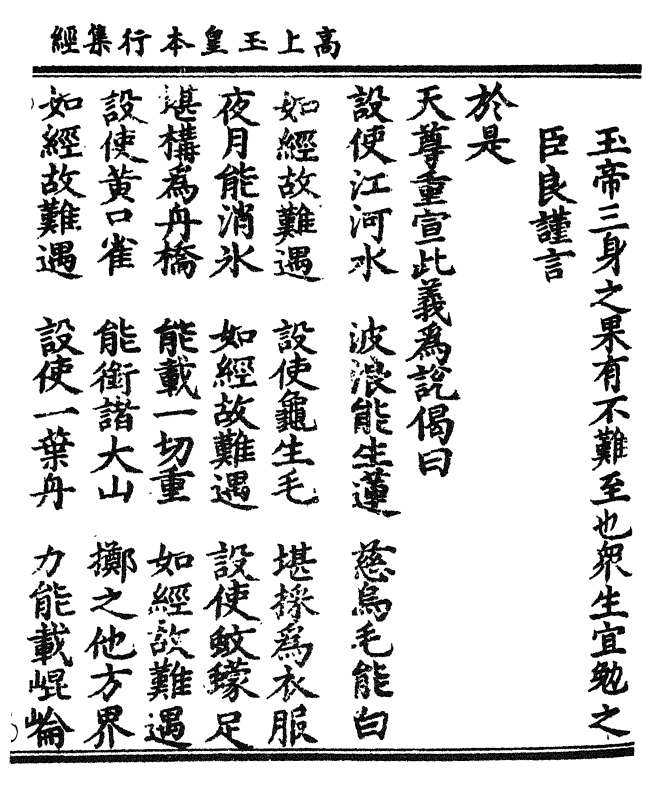 高上玉皇本行集經
玉帝三身之果有不難至也衆生宜勉之
臣良謹言
於是
天尊重宣此義爲說偈曰
設使江河水　波浪能生蓮　慈烏毛能白
如經故難遇　設使龜生毛　堪採爲衣服
夜月能消氷　如經故難遇　設使蚊蠓足
堪構爲舟橋　能載一切重　如經故難遇
設使黃口雀　能銜諸大山　擲之他方界
如經故難遇　設使一葉舟　力能載崐崙